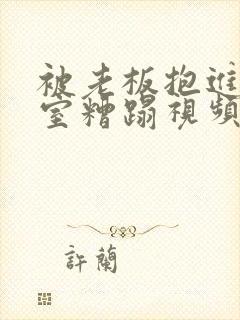 被老板抱进
室糟蹋視頻
許蘭